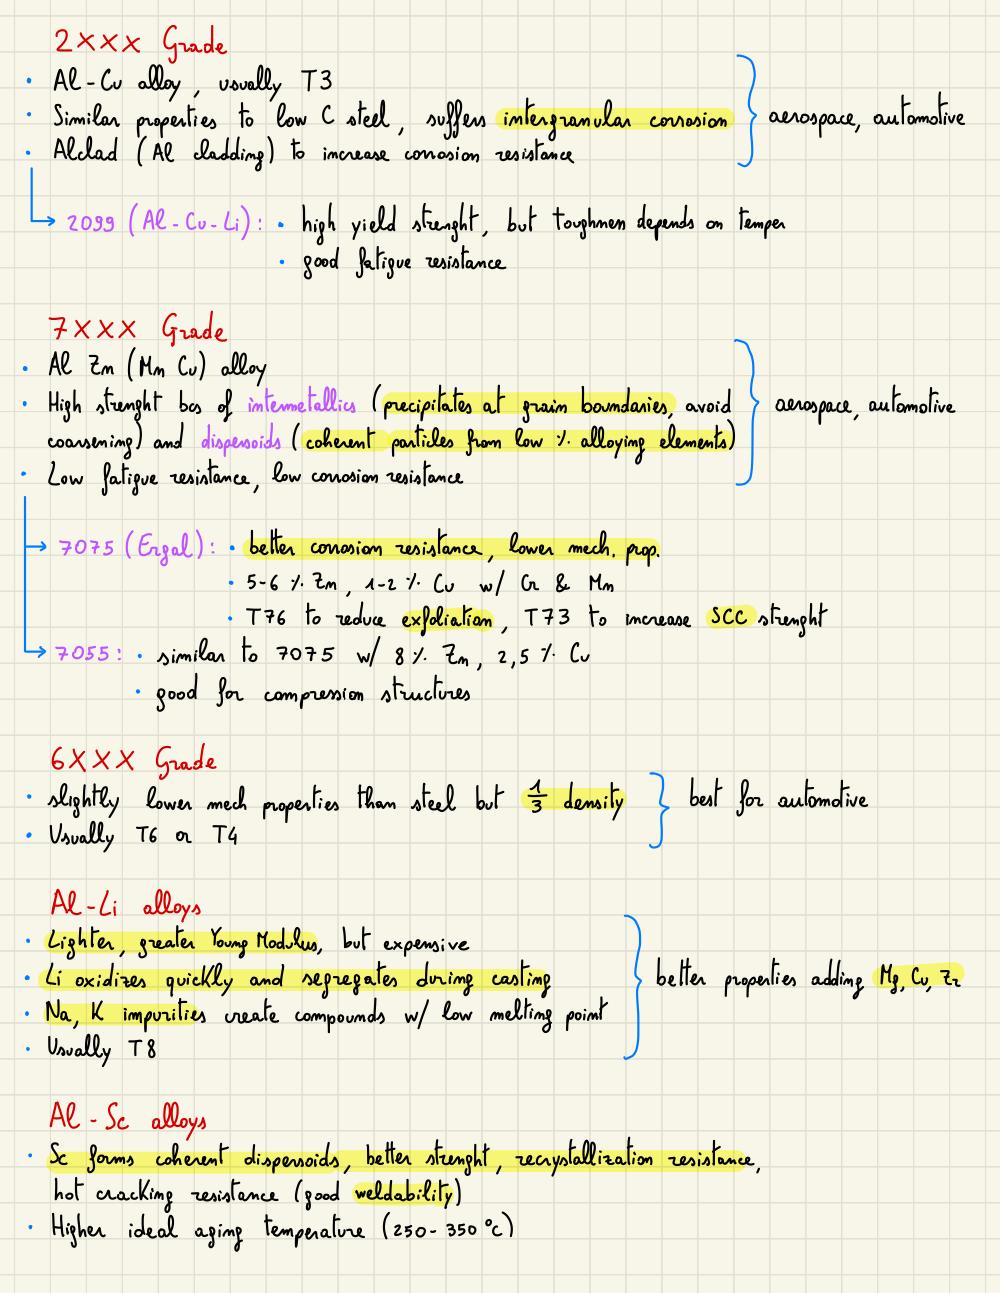 2XXX Grade
• Al-Cu alloy, usually T3
• Similar properties to low C steel, suffers intergranular corrosion
aerospace, automotive
• Alclad (Al cladding) to increase corrosion resistance
2099 (Al-Cu-Li): • high yield strenght, but toughness depends on temper
• good fatigue resistance
7XXX Grade
• Al Zn (Mn Cu) alloy
• High strenght bcs of intermetallics (precipitates at grain boundaries, avoid
aerospace, automotive
coarsening) and dispersoids (coherent particles from low % alloying elements)
• Low fatigue resistance, low corrosion resistance
7075 (Ergal): • better corrosion resistance, lower mech. prop.
• 5-6 % Zn, 1-2 % Cu w/ Cr & Mn
• T76 to reduce exfoliation, T73 to increase SCC strenght
7055: • similar to 7075 w/ 8 % Zn, 2,5 % Cu
• good for compression structures
6XXX Grade
• slightly lower mech properties than steel but 1/3 density
best for automotive
• Usually T6 or T4
Al-Li alloys
• Lighter, greater Young Modulus, but expensive
• Li oxidizes quickly and segregates during casting
better properties adding Mg, Cu, Zr
• Na, K impurities create compounds w/ low melting point
• Usually T8
Al-Sc alloys
• Sc forms coherent dispersoids, better strenght, recrystallization resistance,
hot cracking resistance (good weldability)
• Higher ideal aging temperature (250-350 °C)